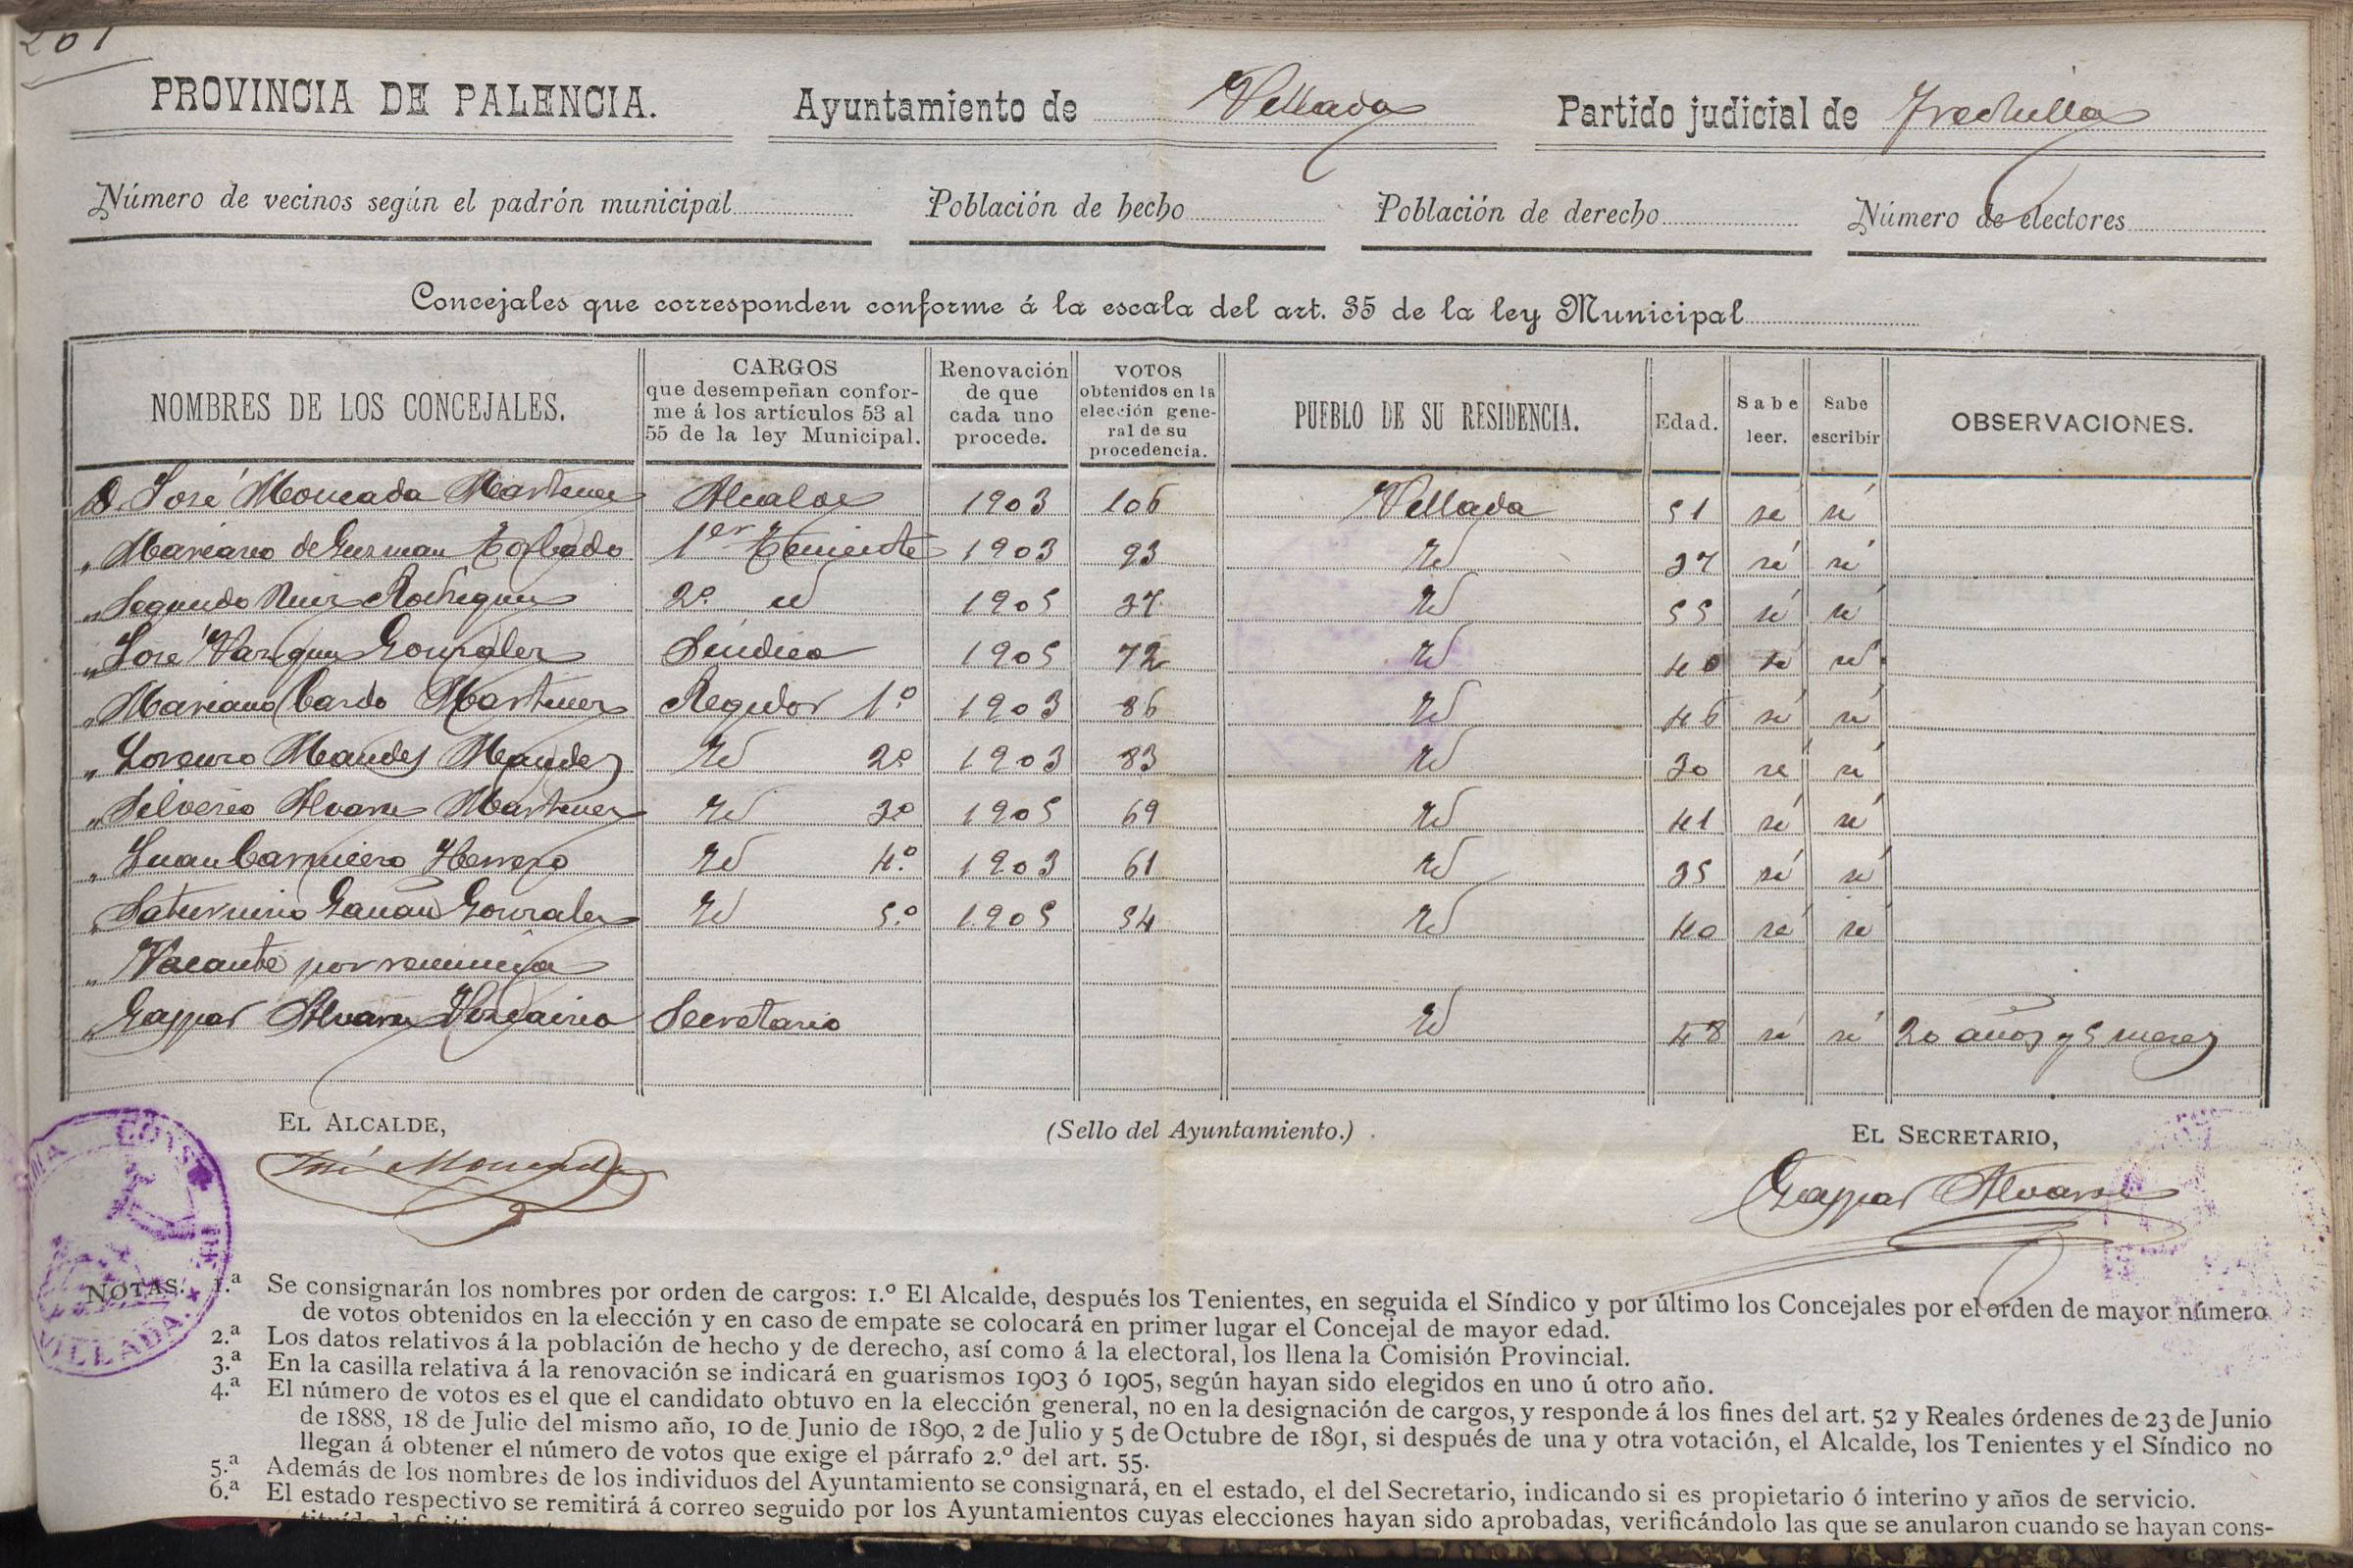 261
PROVINCIA DE PALENCIA. Ayuntamiento de Villada Partido judicial de Frechilla
Número de vecinos según el padrón municipal Población de hecho Población de derecho Número de electores
Concejales que corresponden conforme á la escala del art. 35 de la ley Municipal
NOMBRES DE LOS CONCEJALES. CARGOS que desempeñan conforme á los artículos 53 al 55 de la ley Municipal. Renovación de que cada uno procede. VOTOS obtenidos en la elección general de su procedencia. PUEBLO DE SU RESIDENCIA. Edad. Sabe leer. Sabe escribir OBSERVACIONES.
D. José Moncada Martinez Alcalde 1903 106 Villada 51 si si
" Mariano de Guzman Torbado 1er Teniente 1903 93 Id 37 si si
" Segundo Ruiz Rodriguez 2º id 1905 37 Id 55 si si
" José Vazquez Gonzalez Sindico 1905 72 Id 40 si si
" Mariano Pardo Martinez Regidor 1º 1903 86 Id 46 si si
" Lorenzo Mandes Mandes Id 2º 1903 83 Id 30 si si
" Silverio Alvarez Martinez Id 3º 1905 69 Id 41 si si
" Juan Carnicero Herrero Id 4º 1903 61 Id 35 si si
" Saturnino Gañan Gonzalez Id 5º 1905 54 Id 40 si si
" Vacante por renuncia
" Gaspar Alvarez Secretario Id 48 si si 20 años y 5 meses
EL ALCALDE, (Sello del Ayuntamiento.) EL SECRETARIO,
José Moncada Gaspar Alvarez
VILLADA
NOTAS. 1.ª Se consignarán los nombres por orden de cargos: 1.º El Alcalde, después los Tenientes, en seguida el Síndico y por último los Concejales por el orden de mayor número
de votos obtenidos en la elección y en caso de empate se colocará en primer lugar el Concejal de mayor edad.
2.ª Los datos relativos á la población de hecho y de derecho, así como á la electoral, los llena la Comisión Provincial.
3.ª En la casilla relativa á la renovación se indicará en guarismos 1903 ó 1905, según hayan sido elegidos en uno ú otro año.
4.ª El número de votos es el que el candidato obtuvo en la elección general, no en la designación de cargos, y responde á los fines del art. 52 y Reales órdenes de 23 de Junio
de 1888, 18 de Julio del mismo año, 10 de Junio de 1890, 2 de Julio y 5 de Octubre de 1891, si después de una y otra votación, el Alcalde, los Tenientes y el Síndico no
llegan á obtener el número de votos que exige el párrafo 2.º del art. 55.
5.ª Además de los nombres de los individuos del Ayuntamiento se consignará, en el estado, el del Secretario, indicando si es propietario ó interino y años de servicio.
6.ª El estado respectivo se remitirá á correo seguido por los Ayuntamientos cuyas elecciones hayan sido aprobadas, verificándolo las que se anularon cuando se hayan cons-